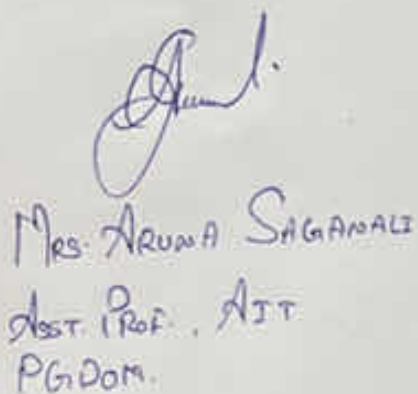 Mrs. Aruna Saganali
Asst. Prof., AIT
PGDOM.